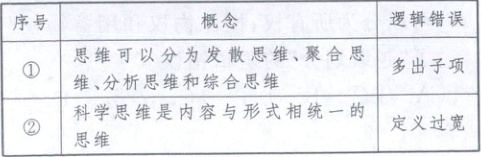 序号 概念 逻辑错误
① 思维可以分为发散思维、聚合思 多出子项
维、分析思维和综合思维
② 科学思维是内容与形式相统一的 定义过宽
思维